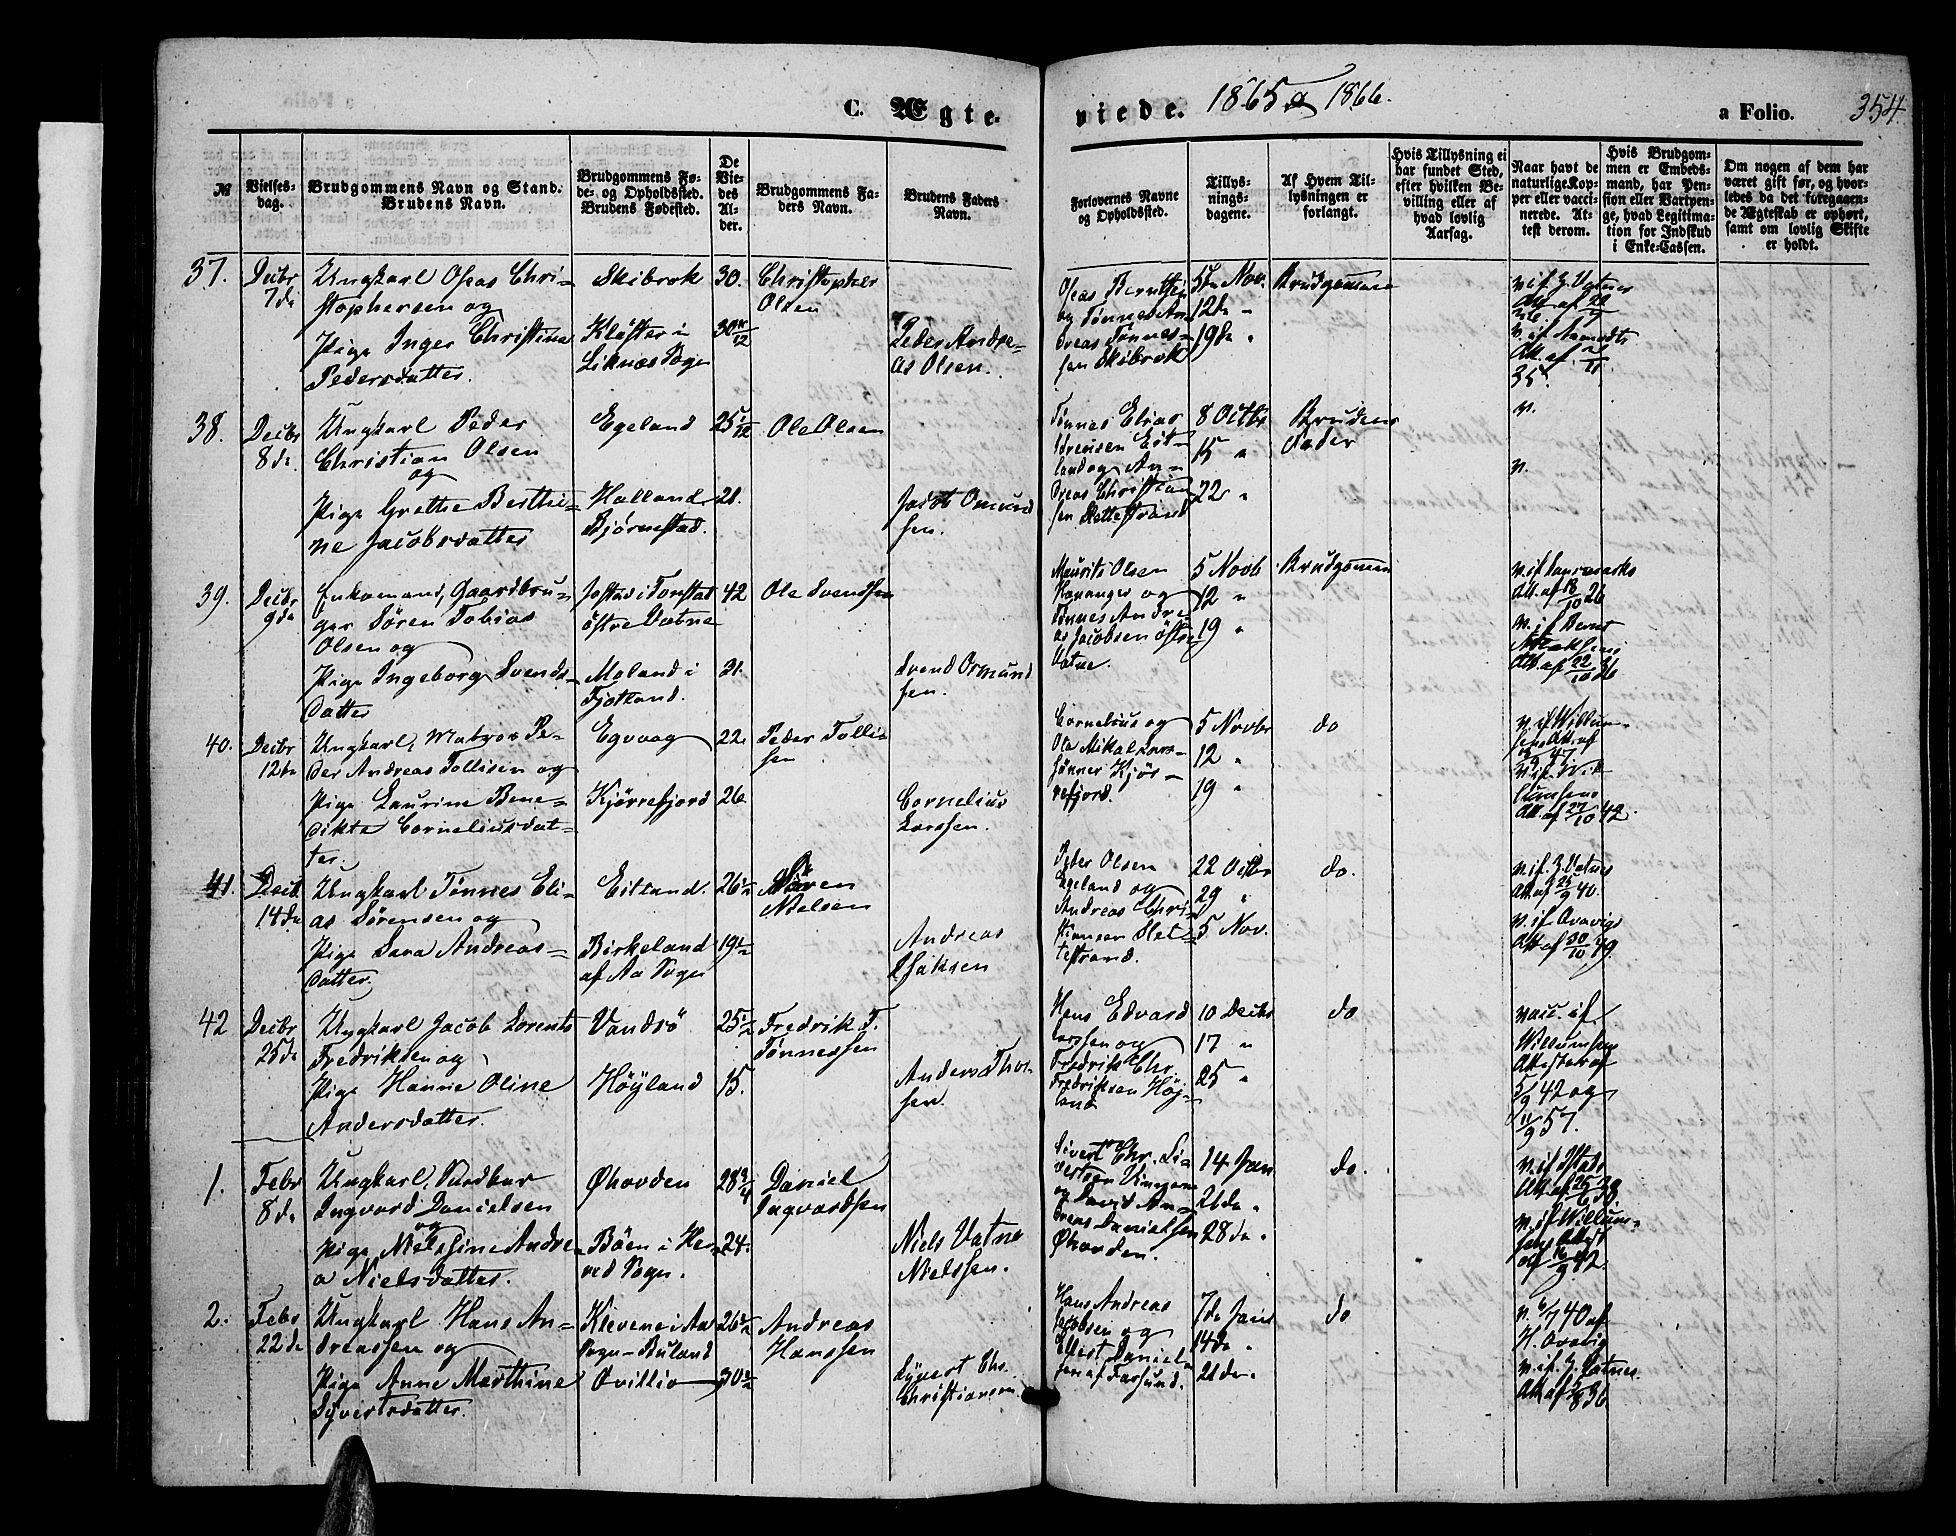 C. Ægte- viede. 1865 a 1866.
a Folio. 354.
№
Vielses-
dag.
Brudgommens Navn og Stand.
Brudens Navn.
Brudgommens Fø-
de- og Opholdssted.
Brudens Fødested.
De
Vie-
des
Al-
der.
Brudgommens Fa-
ders Navn.
Brudens Faders
Navn.
Forlovernes Navne
og Opholdssted.
Tillys-
nings-
dagene.
Af Hvem Til-
lysningen er
forlangt.
Hvis Tillysning ei
har fundet Sted,
efter hvilken Be-
villing eller af
hvad lovlig
Aarsag.
Naar havt de
naturlige Kop-
per eller vacci-
nerede. At-
test derom.
Hvis Brudgom-
men er Embeds-
mand, har Pen-
sion eller Vartpen-
ge, hvad Legitima-
tion for Indskud
i Enke-Cassen.
Om nogen af dem har
været gift før, og hvor-
ledes da det foregaaen-
de Ægteskab er ophørt,
samt om lovlig Skifte
er holdt.
37.
Decbr
7de
Ungkarl Oseas Chri-
stophersen og
Pige Inger Christine
Pedersdatter.
Skibrok
Kløften i
Liknæs Sogn
30.
Christopher
Olsen
Peder Andre-
as Olsen.
Oseas Berntsen
og Tønnes An-
dreas Tønnes-
sen Skibrok
5te Nov.
12te "
19de "
Brudgommen
38.
Decbr
8de
Ungkarl Peder
Christian Olsen
og
Pige Grethe Berthi-
ne Jacobsdatter
Egeland
Holland
Bjørnestad.
21.
Ole Olsen
Jacob Omund
sen.
Tønnes Elias
Sørensen Eit-
land og An-
dreas Christian
sen Slettestrand
8 Octbr
15 "
22 "
Brudens
Fader
v.
v.
39.
Decbr
9de
Enkemand, Gaardbru-
ger Søren Tobias
Olsen og
Pige Ingeborg Svends-
datter
Josdal i Tonstad
østre Vatne
Moland i
Fjotland.
42
31.
Ole Svendsen
Svend Omund
sen.
Maurits Olsen
Hananger og
Tønnes Andre
as Jacobsen østre
Vatne.
5 Novb
12 "
19 "
Brudgommen
40.
Decbr
12te
Ungkarl, Matros Pe-
der Andreas Tollisen og
Pige Laurine Bene-
dikte Corneliusdat-
ter.
Egvaag
Kjørrefjord
22.
26.
Peder Tolli-
sen
Cornelius
Larssen.
Cornelius og
Ole Mikal Lars-
sønner Kjør-
refjord.
5 Novbr
12 "
19 "
do
41.
Decb
14de
Ungkarl Tønnes Eli-
as Sørensen og
Pige Sara Andreas-
datter.
Eitland.
Birkeland
af Aa Sogn
Søren
Nielsen
Andreas
Isaksen
Peder Olsen
Egeland og
Andreas Chri-
stiansen Slet-
testrand.
22 Octbr
29 "
5 Nov.
do.
42
Decbr
25de
Ungkarl Jacob Lorents
Fredriksen og
Pige Hanne Oline
Andersdatter.
Vandsø
Høyland
15.
Fredrik T.
Tønnessen
Anders Thor-
sen.
Hans Edvard
Larssen og
Fredrik Chr.
Fredriksen Høy-
land
10 Decbr
17 "
25 "
do
vacc. if
Willumsens
Attester af
5/9 42 og
11/9 57.
1.
Febr
8de
Ungkarl, Snedker
Ingvard Danielsen
og
Pige Nielsine Andre-
a Nielsdatter.
Øhovden
Böen i Her-
red Sogn.
28 3/4
24.
Daniel
Ingvardsen
Niels Vatne
Nielssen.
Sivert Chr. Si-
vertsen
og David An-
dreas Danielsen
Øhovden.
14 Jan
21de "
28de "
do.
2.
Febr
22de
Ungkarl Hans An-
dreassen og
Pige Anne Marthine
Syvertsdatter.
Klevene i Aa
Sogn - Buland
Ovillie
26 1/2
30 1/2
Andreas
Hanssen
Syvert Chr.
Christiansen.
Hans Andreas
Jacobsen og
Ellert Daniel-
sen af Farsund.
7de Jan
14de "
21de "
do
v. 6/7 40 af